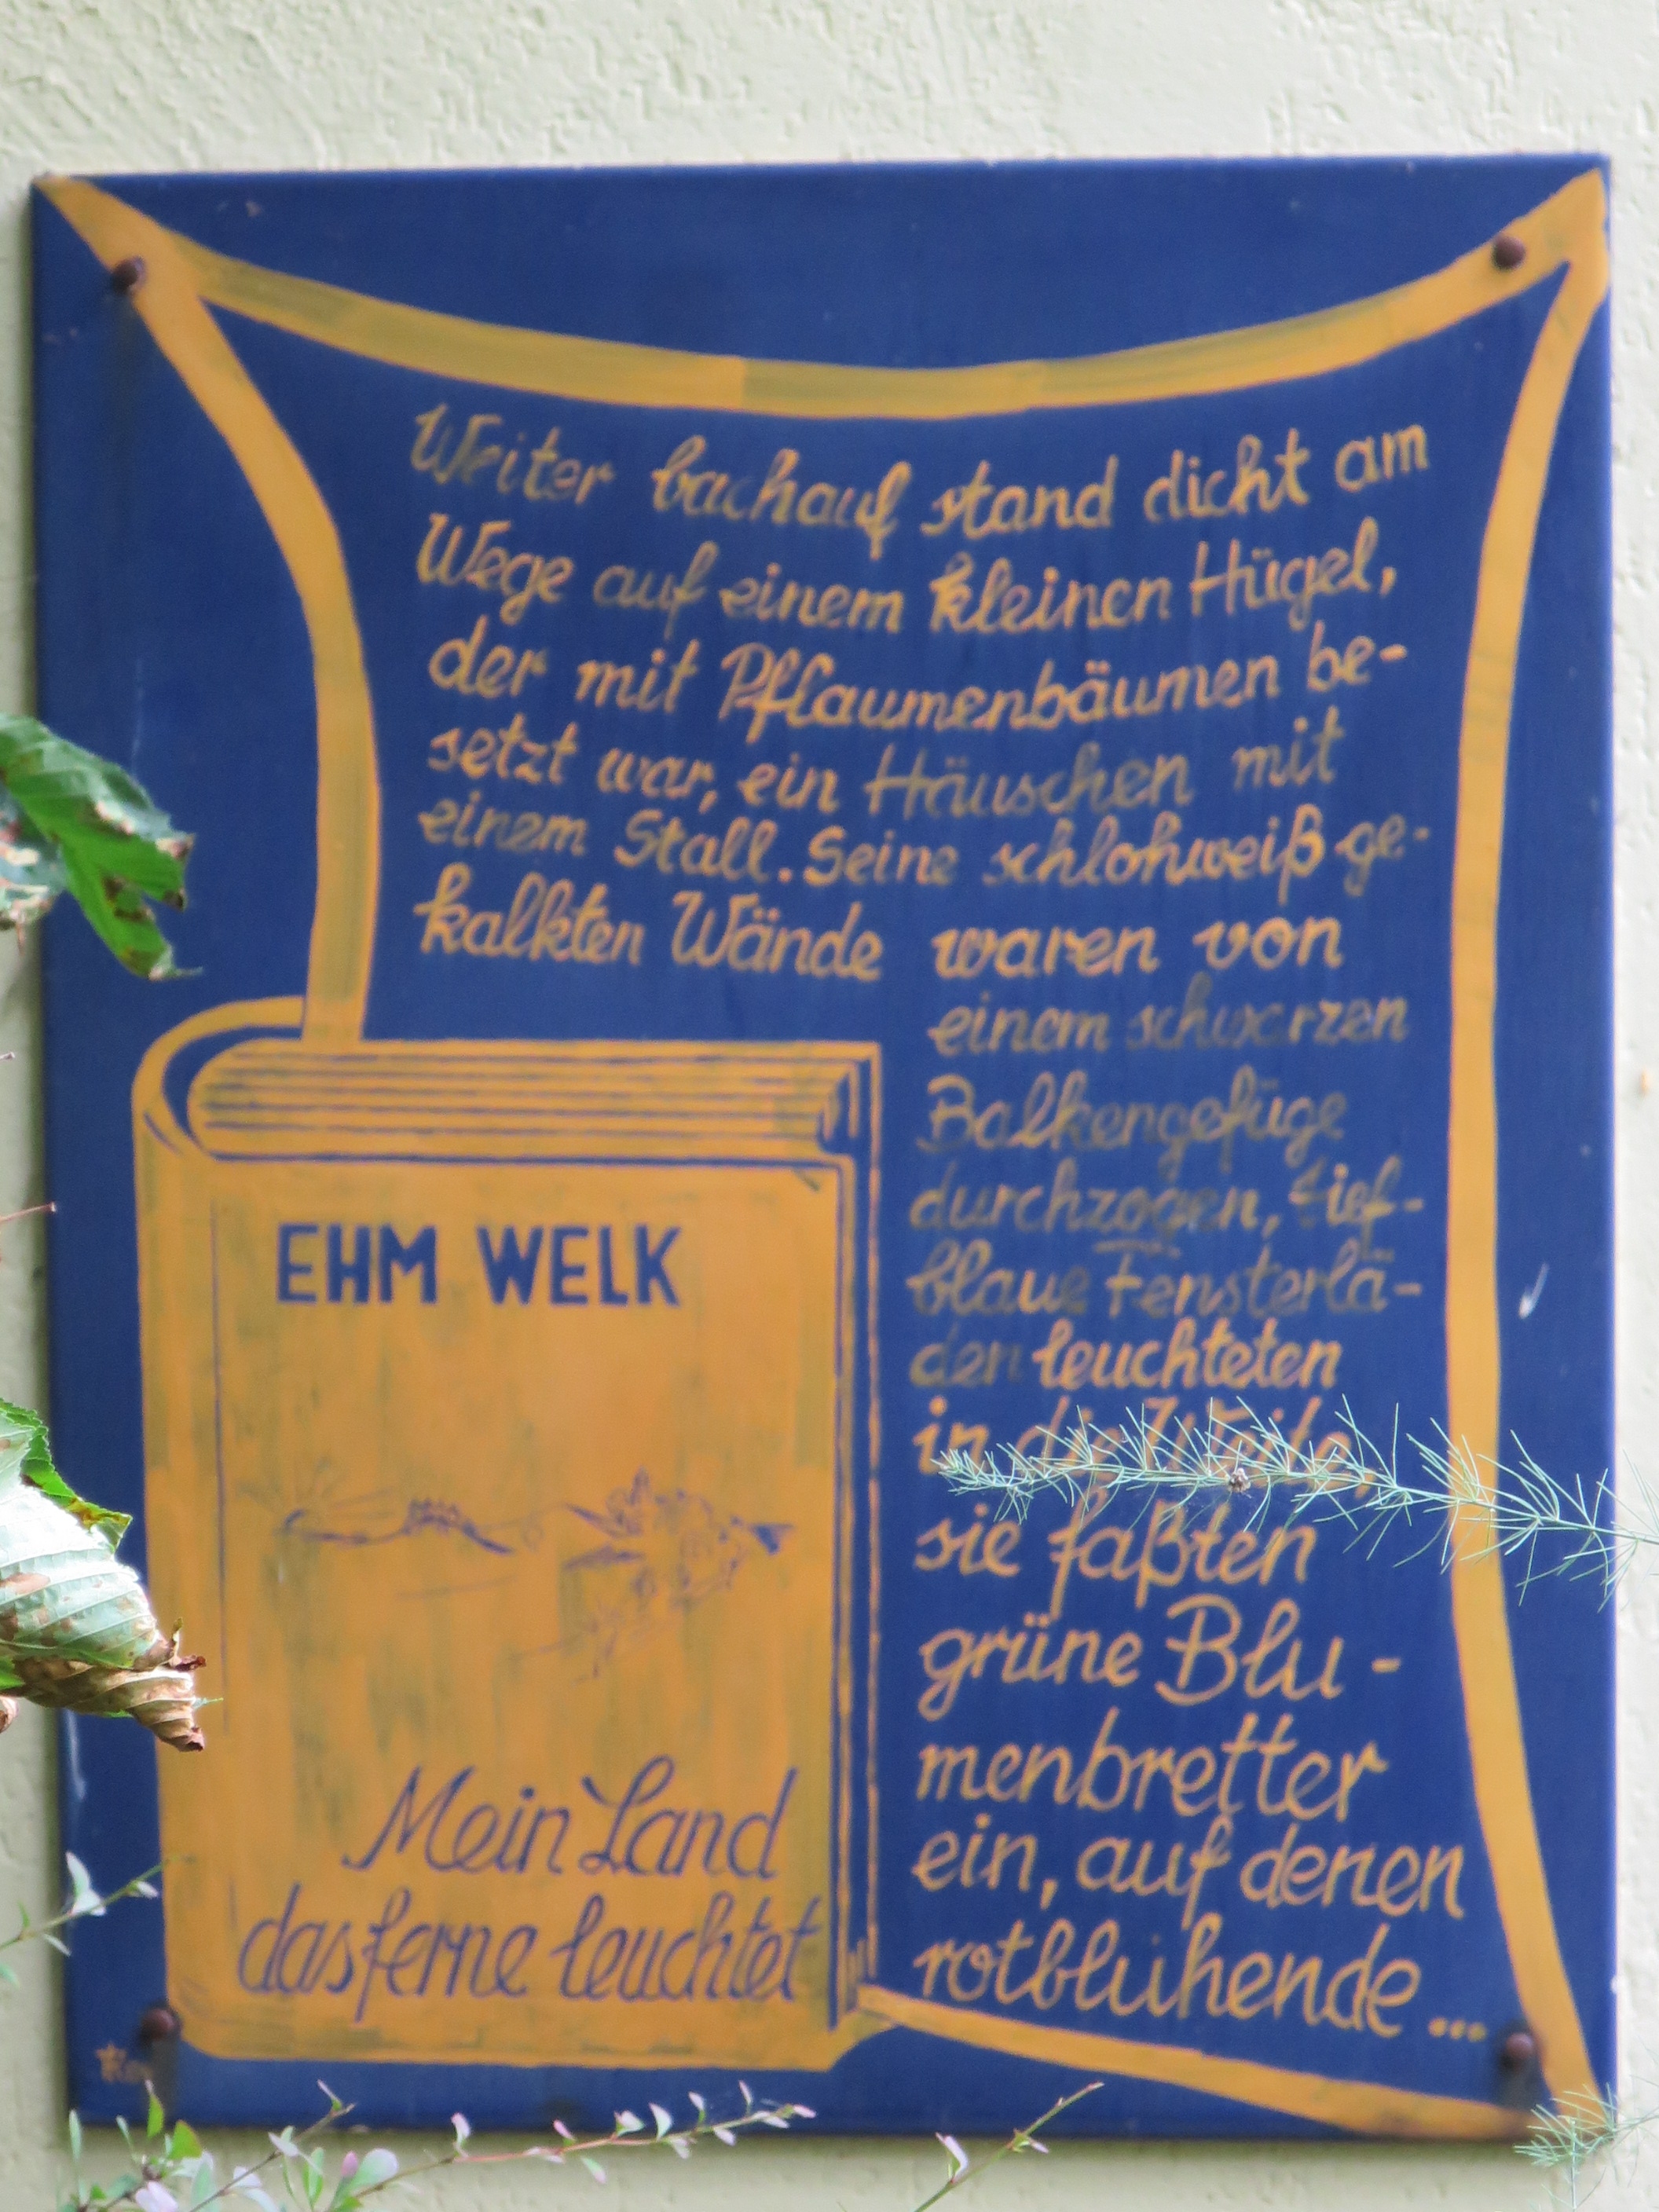 Weiter bachauf stand dicht am
Wege auf einem kleinen Hügel,
der mit Pflaumenbäumen be-
setzt war, ein Häuschen mit
einem Stall. Seine schlohweiß ge-
kalkten Wände waren von
einem schwarzen
Balkengefüge
durchzogen, tief-
blaue Fensterlä-
den leuchteten
in die Weite,
sie faßten
grüne Blu-
menbretter
ein, auf denen
rotblühende...
EHM WELK
Mein Land
das ferne leuchtet